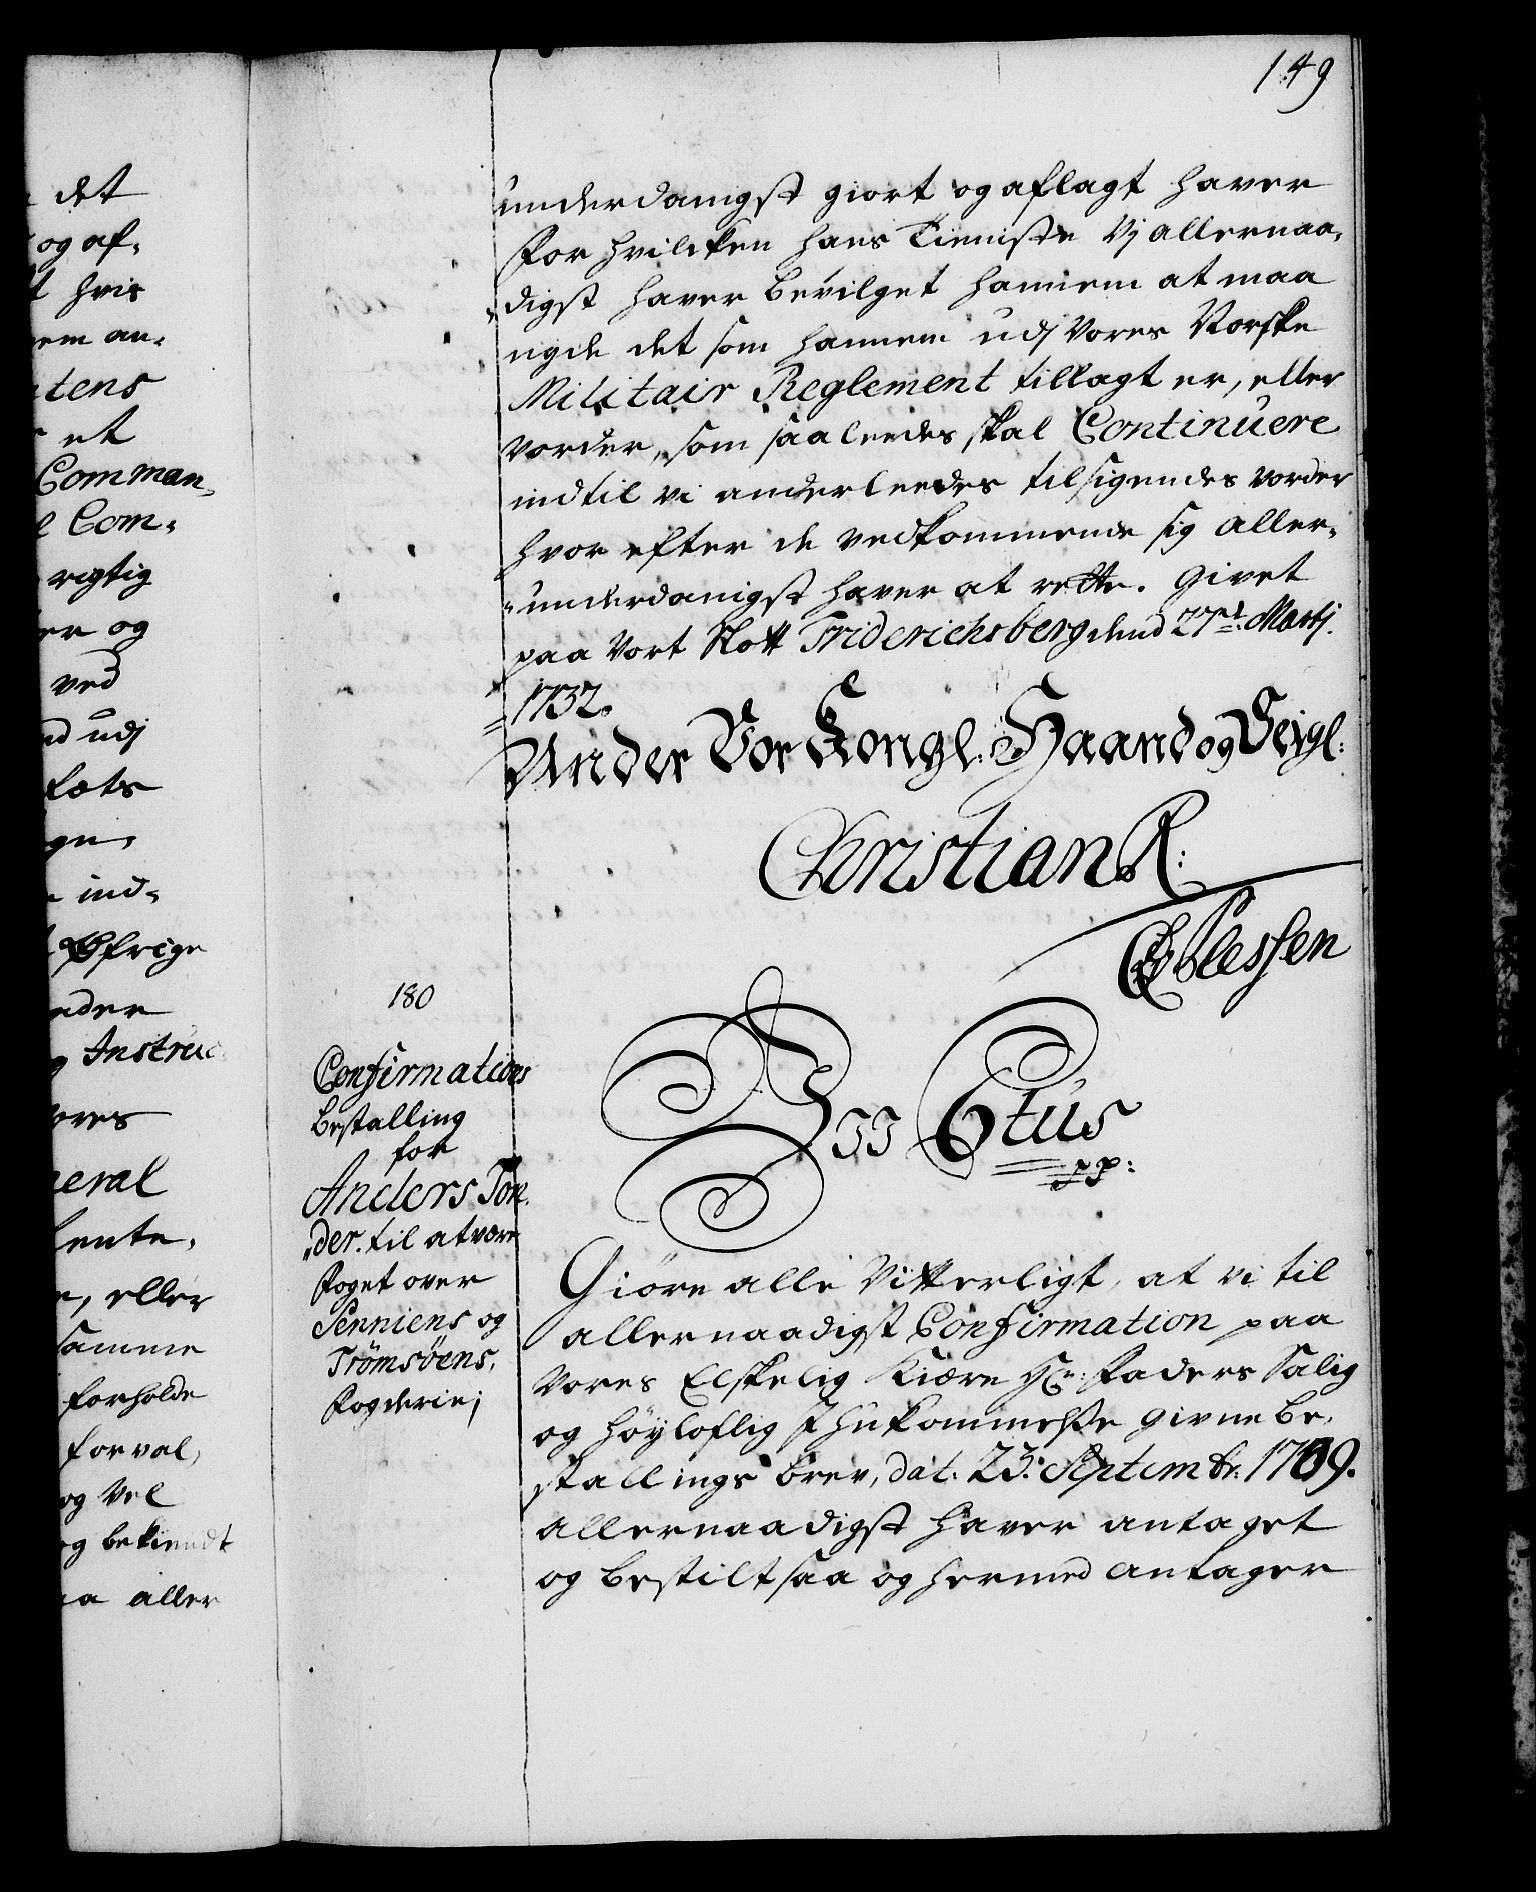 149
underdanigst giort og aflagt haver
for hvilcken hans Tieniste Vj allernaa,
digst haver bevilget hannem at maa
nyde det som hannem udj Vores Norske
Militair Reglement tillagt er, eller
vorder, som saaleedes skal Continuere
indtil vi anderleedes tilsigendes vorder
hvor efter de vedkommende sig aller,
underdanigst haver at rette. Givet
paa Vort Slott Friderichsberg dend Martj.
1732.
Under Vor Kongl: Haand og Seigl:
Christian R:
Plessen
180
Confirmations
bestalling
for
Anders Ton,
der. til at være
Foget over
Senniens og
Trømsøens.
Fogderie;
Vj C 6tus
pp:
Giøre alle Vitterligt, at vi til
allernaadigst Confirmation paa
Vores Elskelig Kiære Hr: Faders Salig
og høyloflig Ihukommelse givne be,
stallings brev, dat. 23. Septembr: 1709.
allernaadigst haver antaget
og bestilt saa og hermed antager
det
og af,
hvis
an,
et
Comman,
Com,
rigtig
og
ved
udj
ind,
Øfrige
Instruc
eller
samme
forholde
forval,
og Vel
bekiendt
aller